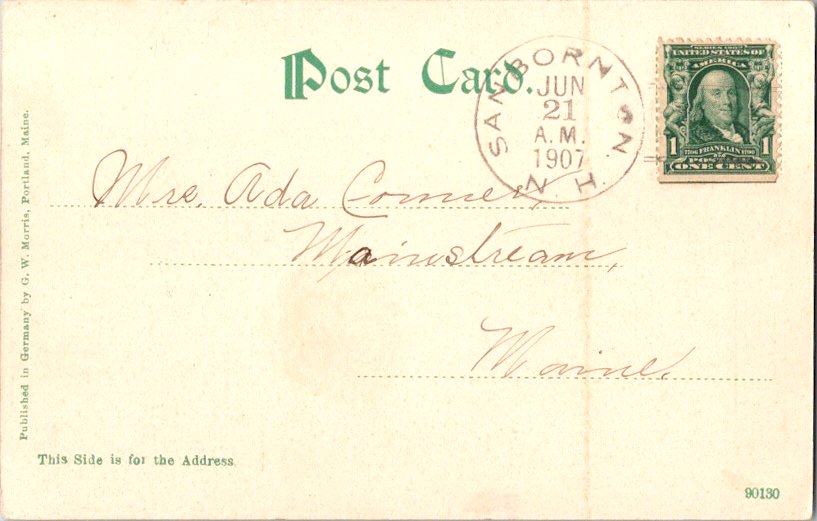 Post Card.
SANBORNTON. N.H.
JUN
21
A.M.
1907
SERIES 1902
UNITED STATES OF
AMERICA
1 1
1706 FRANKLIN 1790
POSTAGE
ONE CENT
Mrs. Ada Conner,
Mainstream,
Maine.
Published in Germany by G. W. Morris, Portland, Maine.
This Side is for the Address.
90130